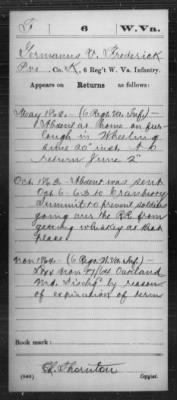 F 6 W.Va.
Germanus V. Frederick
Pvt., Co. K, 6 Reg't W. Va. Infantry.
Appears on Returns as follows:
May 186 . (6 Regt Va. Inf.) —
Absent at home on fur
lough in Wheeling
since 20" inst. to
return June 2"
Oct. 1863 Absent was sent
Oct 6-63 to Cranberry
Summit to prevent soldiers
going over the RR from
getting whiskey at that
place
Nov 1864 (6 Regt W.Va. Inf.) —
Nov 64 Oakland
Md. Disch'g by reason
of expiration of term
Book mark:
Thornton
(546) Copyist.